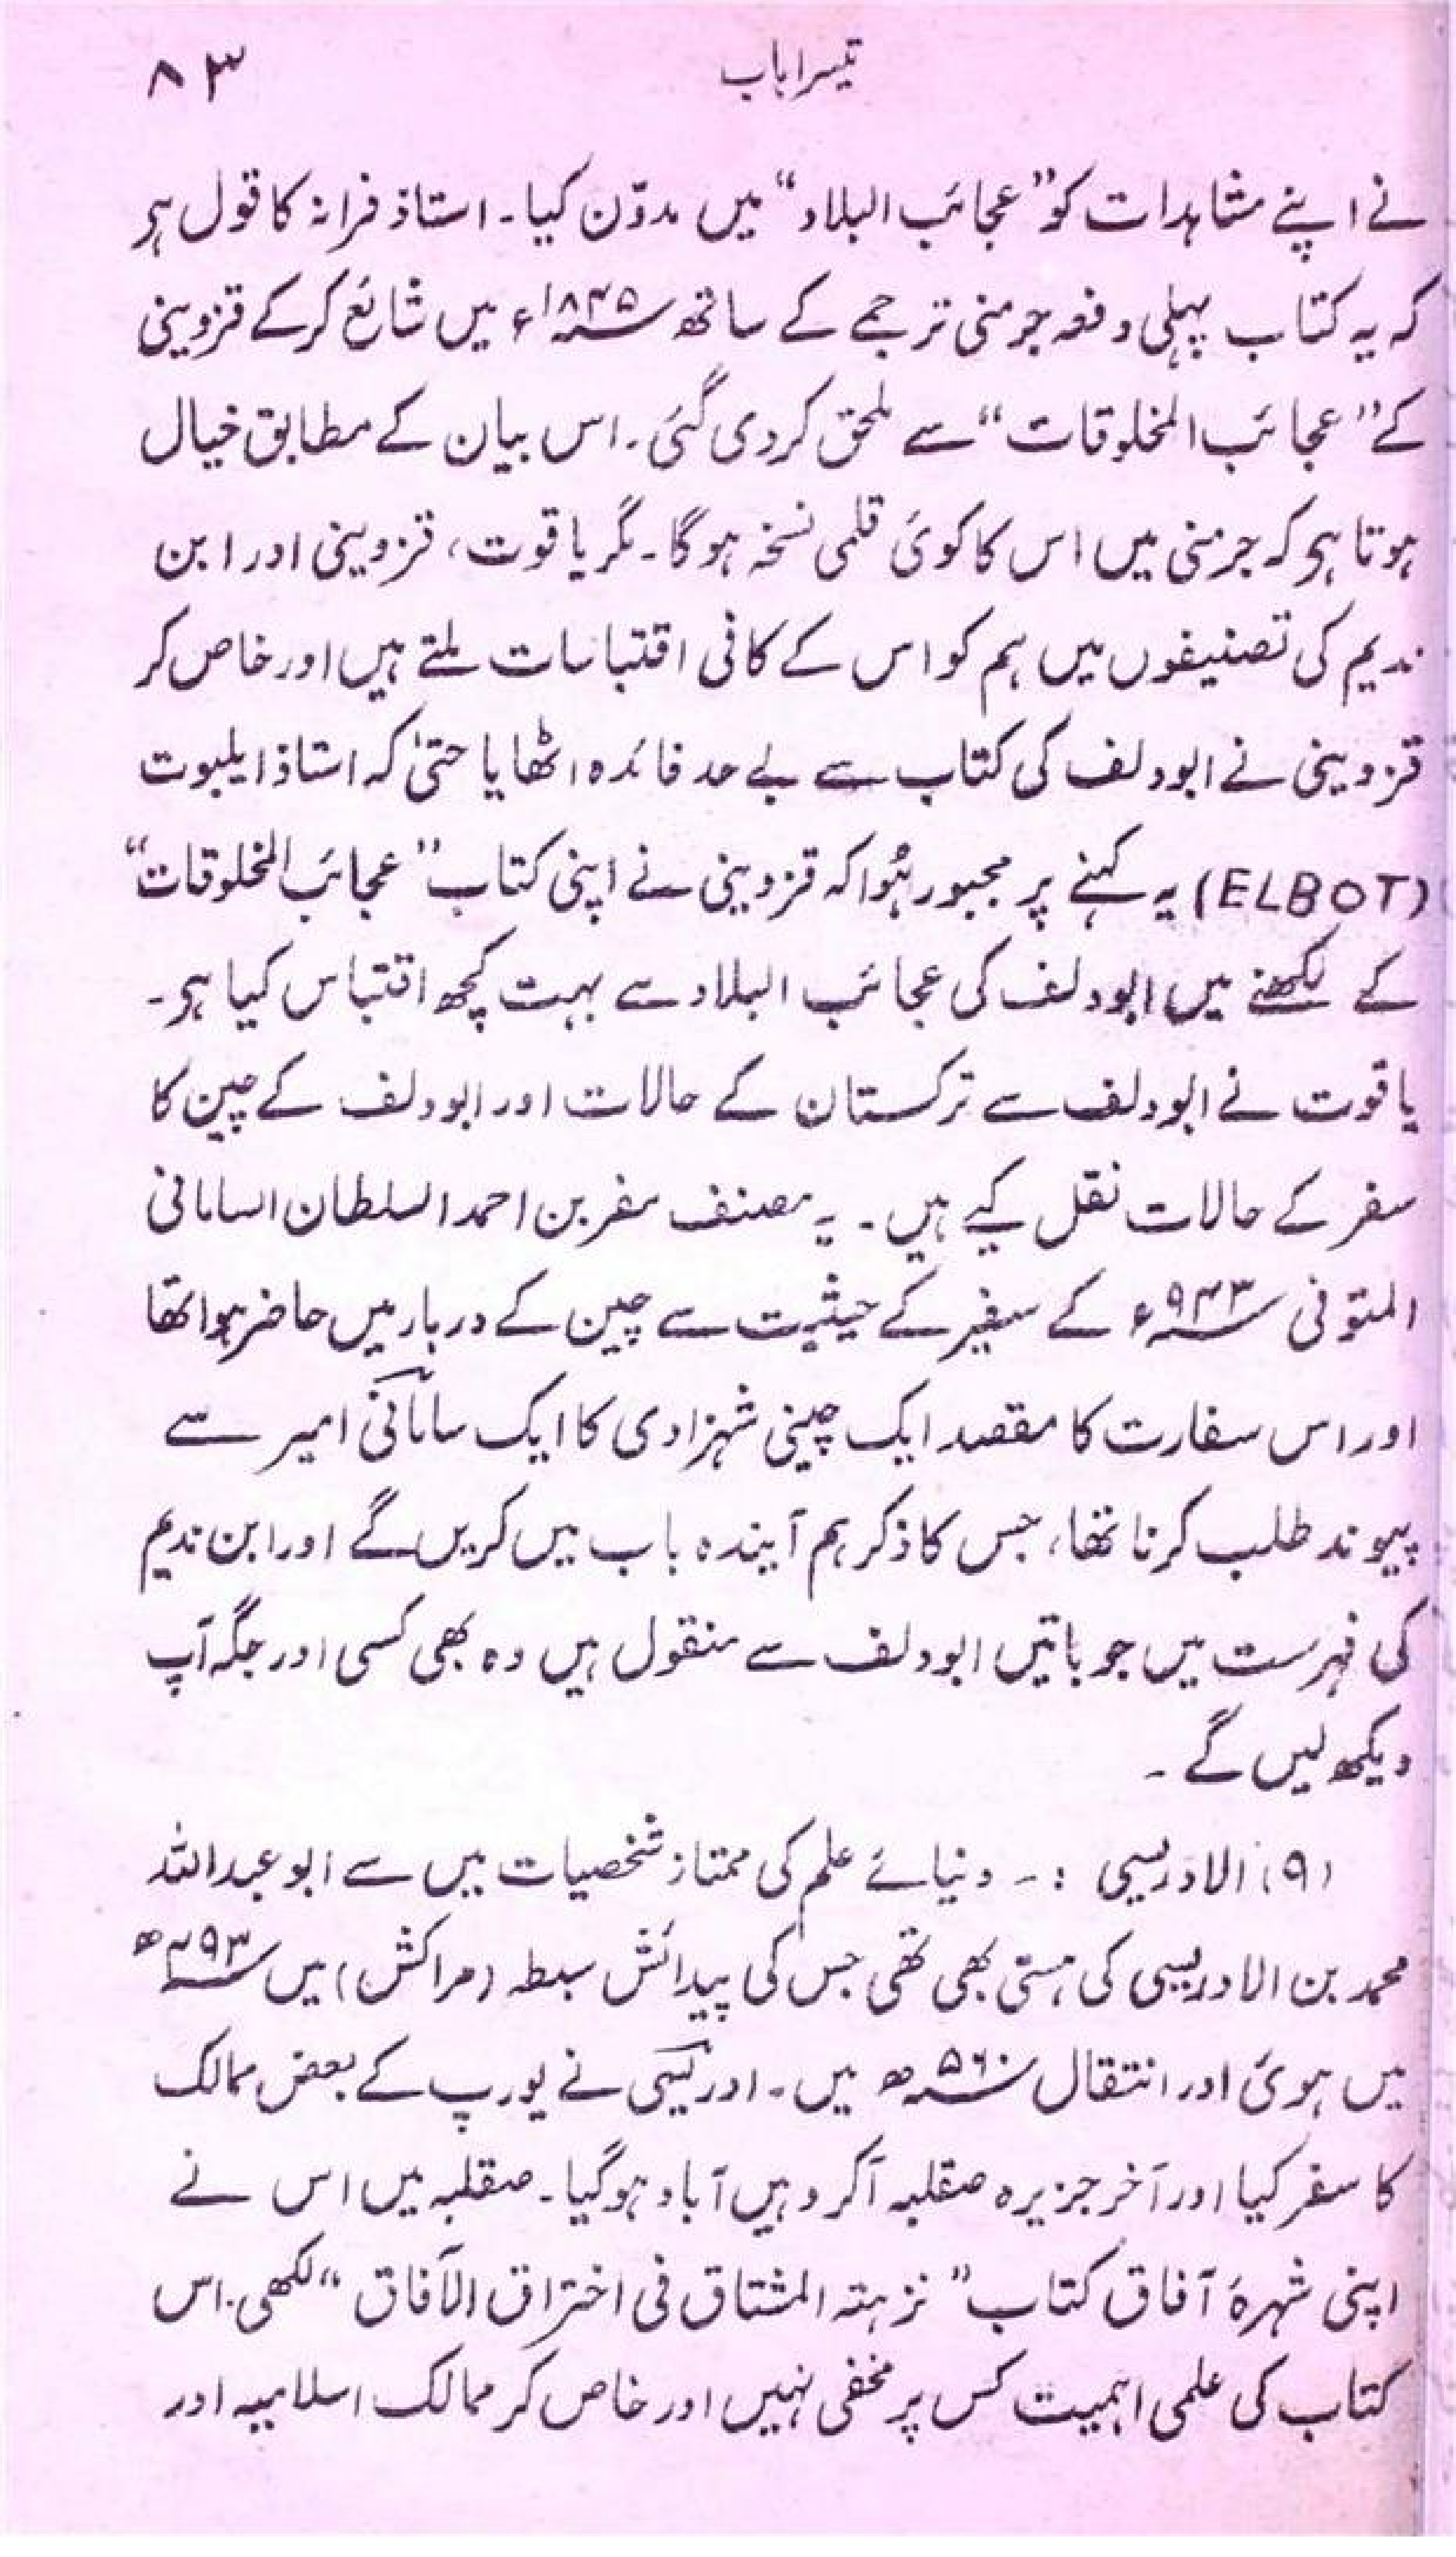 تیسرا باب ۸۳
نے اپنے مشاہدات کو ”عجائب البلاد“ میں مدوّن کیا۔ استاذ فرانہ کا قول ہر
کہ یہ کتاب پہلی دفعہ جرمنی ترجمے کے ساتھ ۱۸۴۵ء میں شائع کرکے قزوینی
کے ”عجائب المخلوقات“ سے ملحق کردی گئی۔ اس بیان کے مطابق خیال
ہوتا ہر کہ جرمنی میں اس کا کوئی قلمی نسخہ ہوگا۔ مگر یاقوت، قزوینی اور ابن
ندیم کی تصنیفوں میں ہم کو اس کے کافی اقتباسات ملتے ہیں اور خاص کر
قزوینی نے ابودلف کی کتاب سے بے حد فائدہ اٹھایا حتیٰ کہ استاذ ایلبوت
(ELBOT) یہ کہنے پر مجبور ہُوا کہ قزوینی نے اپنی کتاب ”عجائب المخلوقات“
کے لکھنے میں ابودلف کی عجائب البلاد سے بہت کچھ اقتباس کیا ہر۔
یاقوت نے ابودلف سے ترکستان کے حالات اور ابودلف کے چین کا
سفر کے حالات نقل کیے ہیں۔ یہ مصنف سفر بن احمد السلطان السامانی
المتوفی ۹۴۳ء کے سفیر کے حیثیت سے چین کے دربار میں حاضر ہوا تھا
اور اس سفارت کا مقصد ایک چینی شہزادی کا ایک سامانی امیر سے
پیوند طلب کرنا تھا، جس کا ذکر ہم آیندہ باب میں کریں گے اور ابن ندیم
کی فہرست میں جو باتیں ابودلف سے منقول ہیں وہ بھی کسی اور جگہ آپ
دیکھ لیں گے۔
(۹) الادریسی :۔ دنیائے علم کی ممتاز شخصیات میں سے ابو عبداللہ
محمد بن الادریسی کی ہستی بھی تھی جس کی پیدائش سبطہ (مراکش) میں ۴۹۳ھ
میں ہوئی اور انتقال ۵۶۰ھ میں۔ ادریسی نے یورپ کے بعض ممالک
کا سفر کیا اور آخر جزیرہ صقلبہ آکر وہیں آباد ہوگیا۔ صقلبہ میں اس نے
اپنی شہرۂ آفاق کتاب ”نزہتہ المشتاق فی اختراق الآفاق“ لکھی۔ اس
کتاب کی علمی اہمیت کس پر مخفی نہیں اور خاص کر ممالک اسلامیہ اور